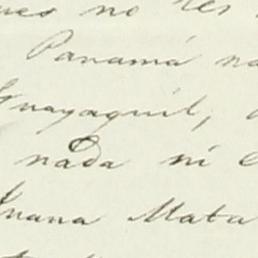 no les
Panamá na
Guayaquil,
nada ni e
Juana Mata